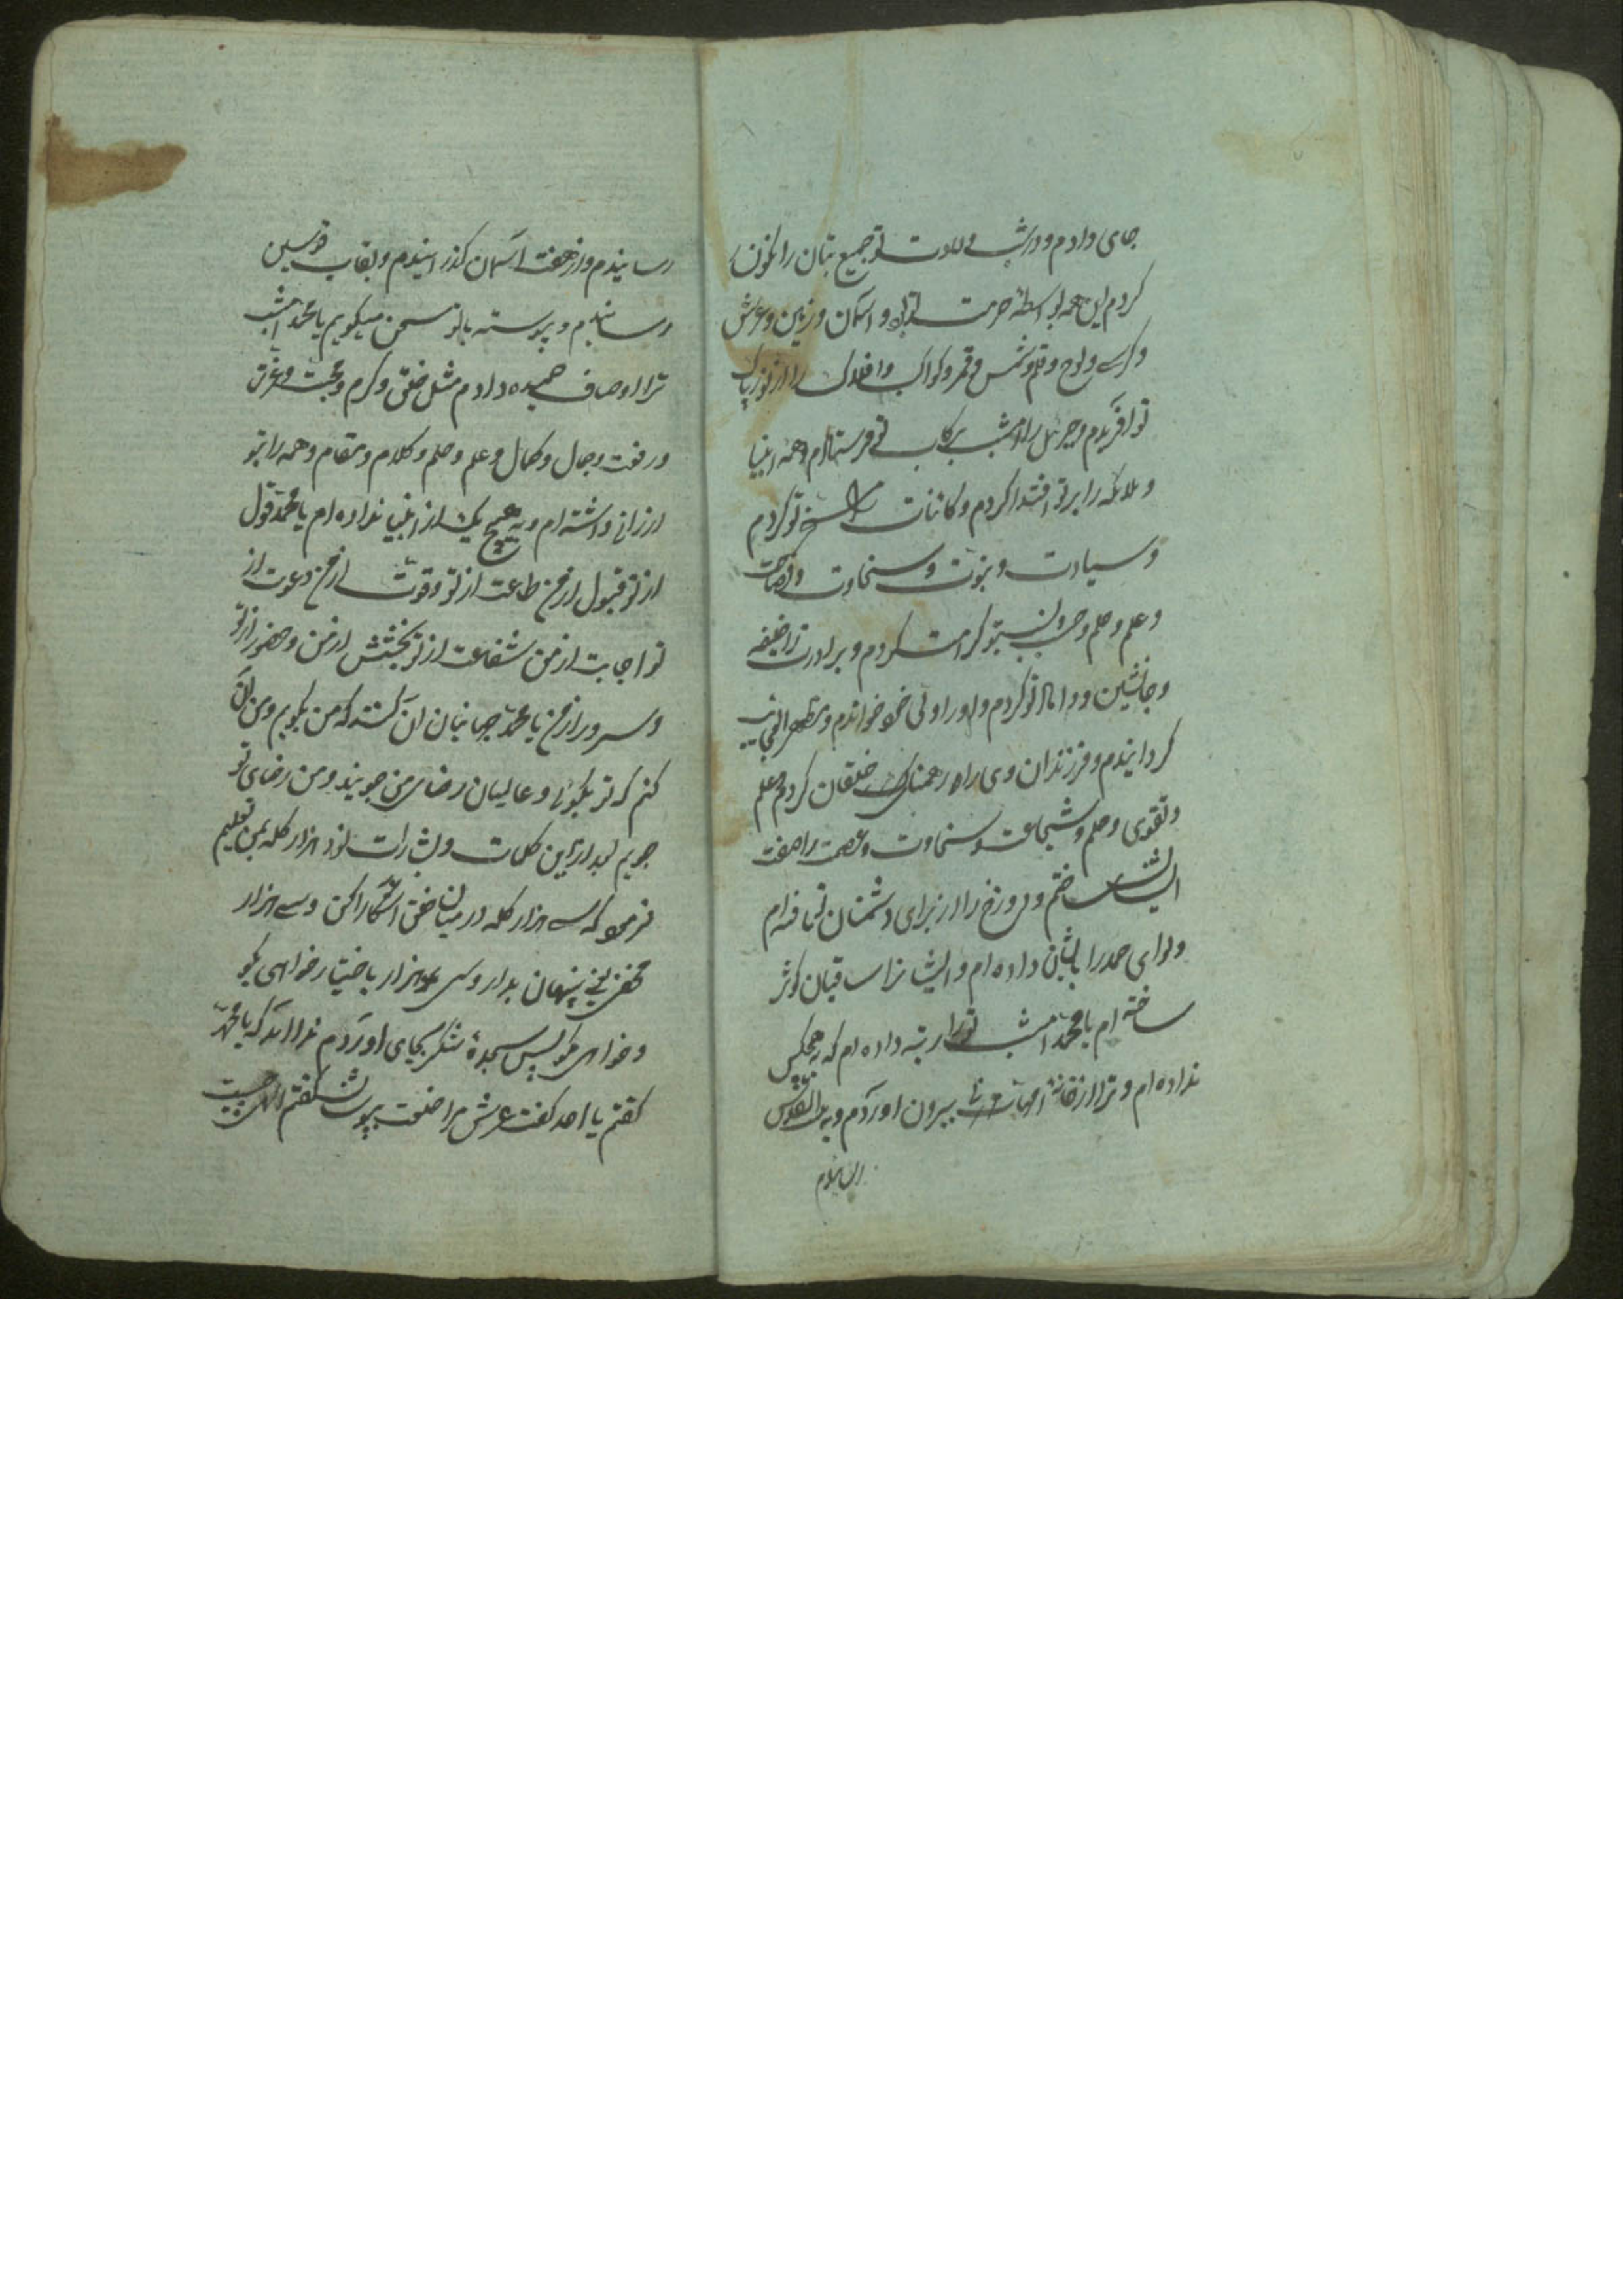 جای دادم و در شب ولادت تو جمیع بتان را نکون
کردم این همه بواسطهٔ حرمت تو بود و آسمان و زمین و عرش
و کرسی و لوح و قلم و شمس و قمر و کواکب و افلاک را از نور پاک
تو آفریدم و جبرئیل را امشب برکاب تو فرستادم و همه انبیا
و ملائکه را بر تو اقتدا کردم و کائنات را تو کردم
و سیادت و نبوت و سخاوت و فصاحت
و علم و حلم و حسب و نسب بتو کرامت کردم و برادرت را خلیفه
و جانشین و داماد تو کردم و او را ولی خود خواندم و مظهر العجایب
کردانیدم و فرزندان وی را راه رهنمای خلقان کردم و علم
و تقوی و حلم و شجاعت و سخاوت و عصمت را صفت
ایشان ساختم و دوزخ را از برای دشمنان تافته‌ام
و لوای حمد را بایشان داده ام و ایشانرا ساقیان کوثر
ساخته ام یا محمد امشب تو را رتبه داده ام که بهیچکس
نداده ام و ترا از خانه امهانی بیرون آوردم و به بیت المقدس
رسانیدم
رسانیدم و از هفت آسمان کذرانیدم و بقاب قوسین
رسانیدم و پیوسته با تو سخن میکویم یا محمد امشب
ترا اوصاف حمیده دادم مثل خلق و کرم و محبت و عزت
و رفعت و جمال و کمال و علم و حلم و کلام و مقام و همه را بتو
ارزانی داشته ام و به هیچ یک از انبیا نداده ام یا محمد قول
از تو قبول از من طاعت از تو و قوت از من دعوت از
تو اجابت از من شفاعت از تو بخشش از من و حضور از تو
و سرور از من یا محمد جهانیان آن کنند که من بکویم و من آن
کنم که تو بکوئی و عالمیان رضای من جویند و من رضای تو
جویم بعد از این کلمات و اشارات نود هزار کلمه بمن تعلیم
فرمود که سی هزار کلمه در میان خلق آشکارا کن و سی هزار
مخفی یعنی پنهان بدار و سی هزار باختیار خواهی بکو
و خواهی مکو پس سجدهٔ شکر بجای آوردم ندا آمد که یا محمد
کفتم یا احد کفت عرش مرا خلعت بپوشان کفتم الهی چیست